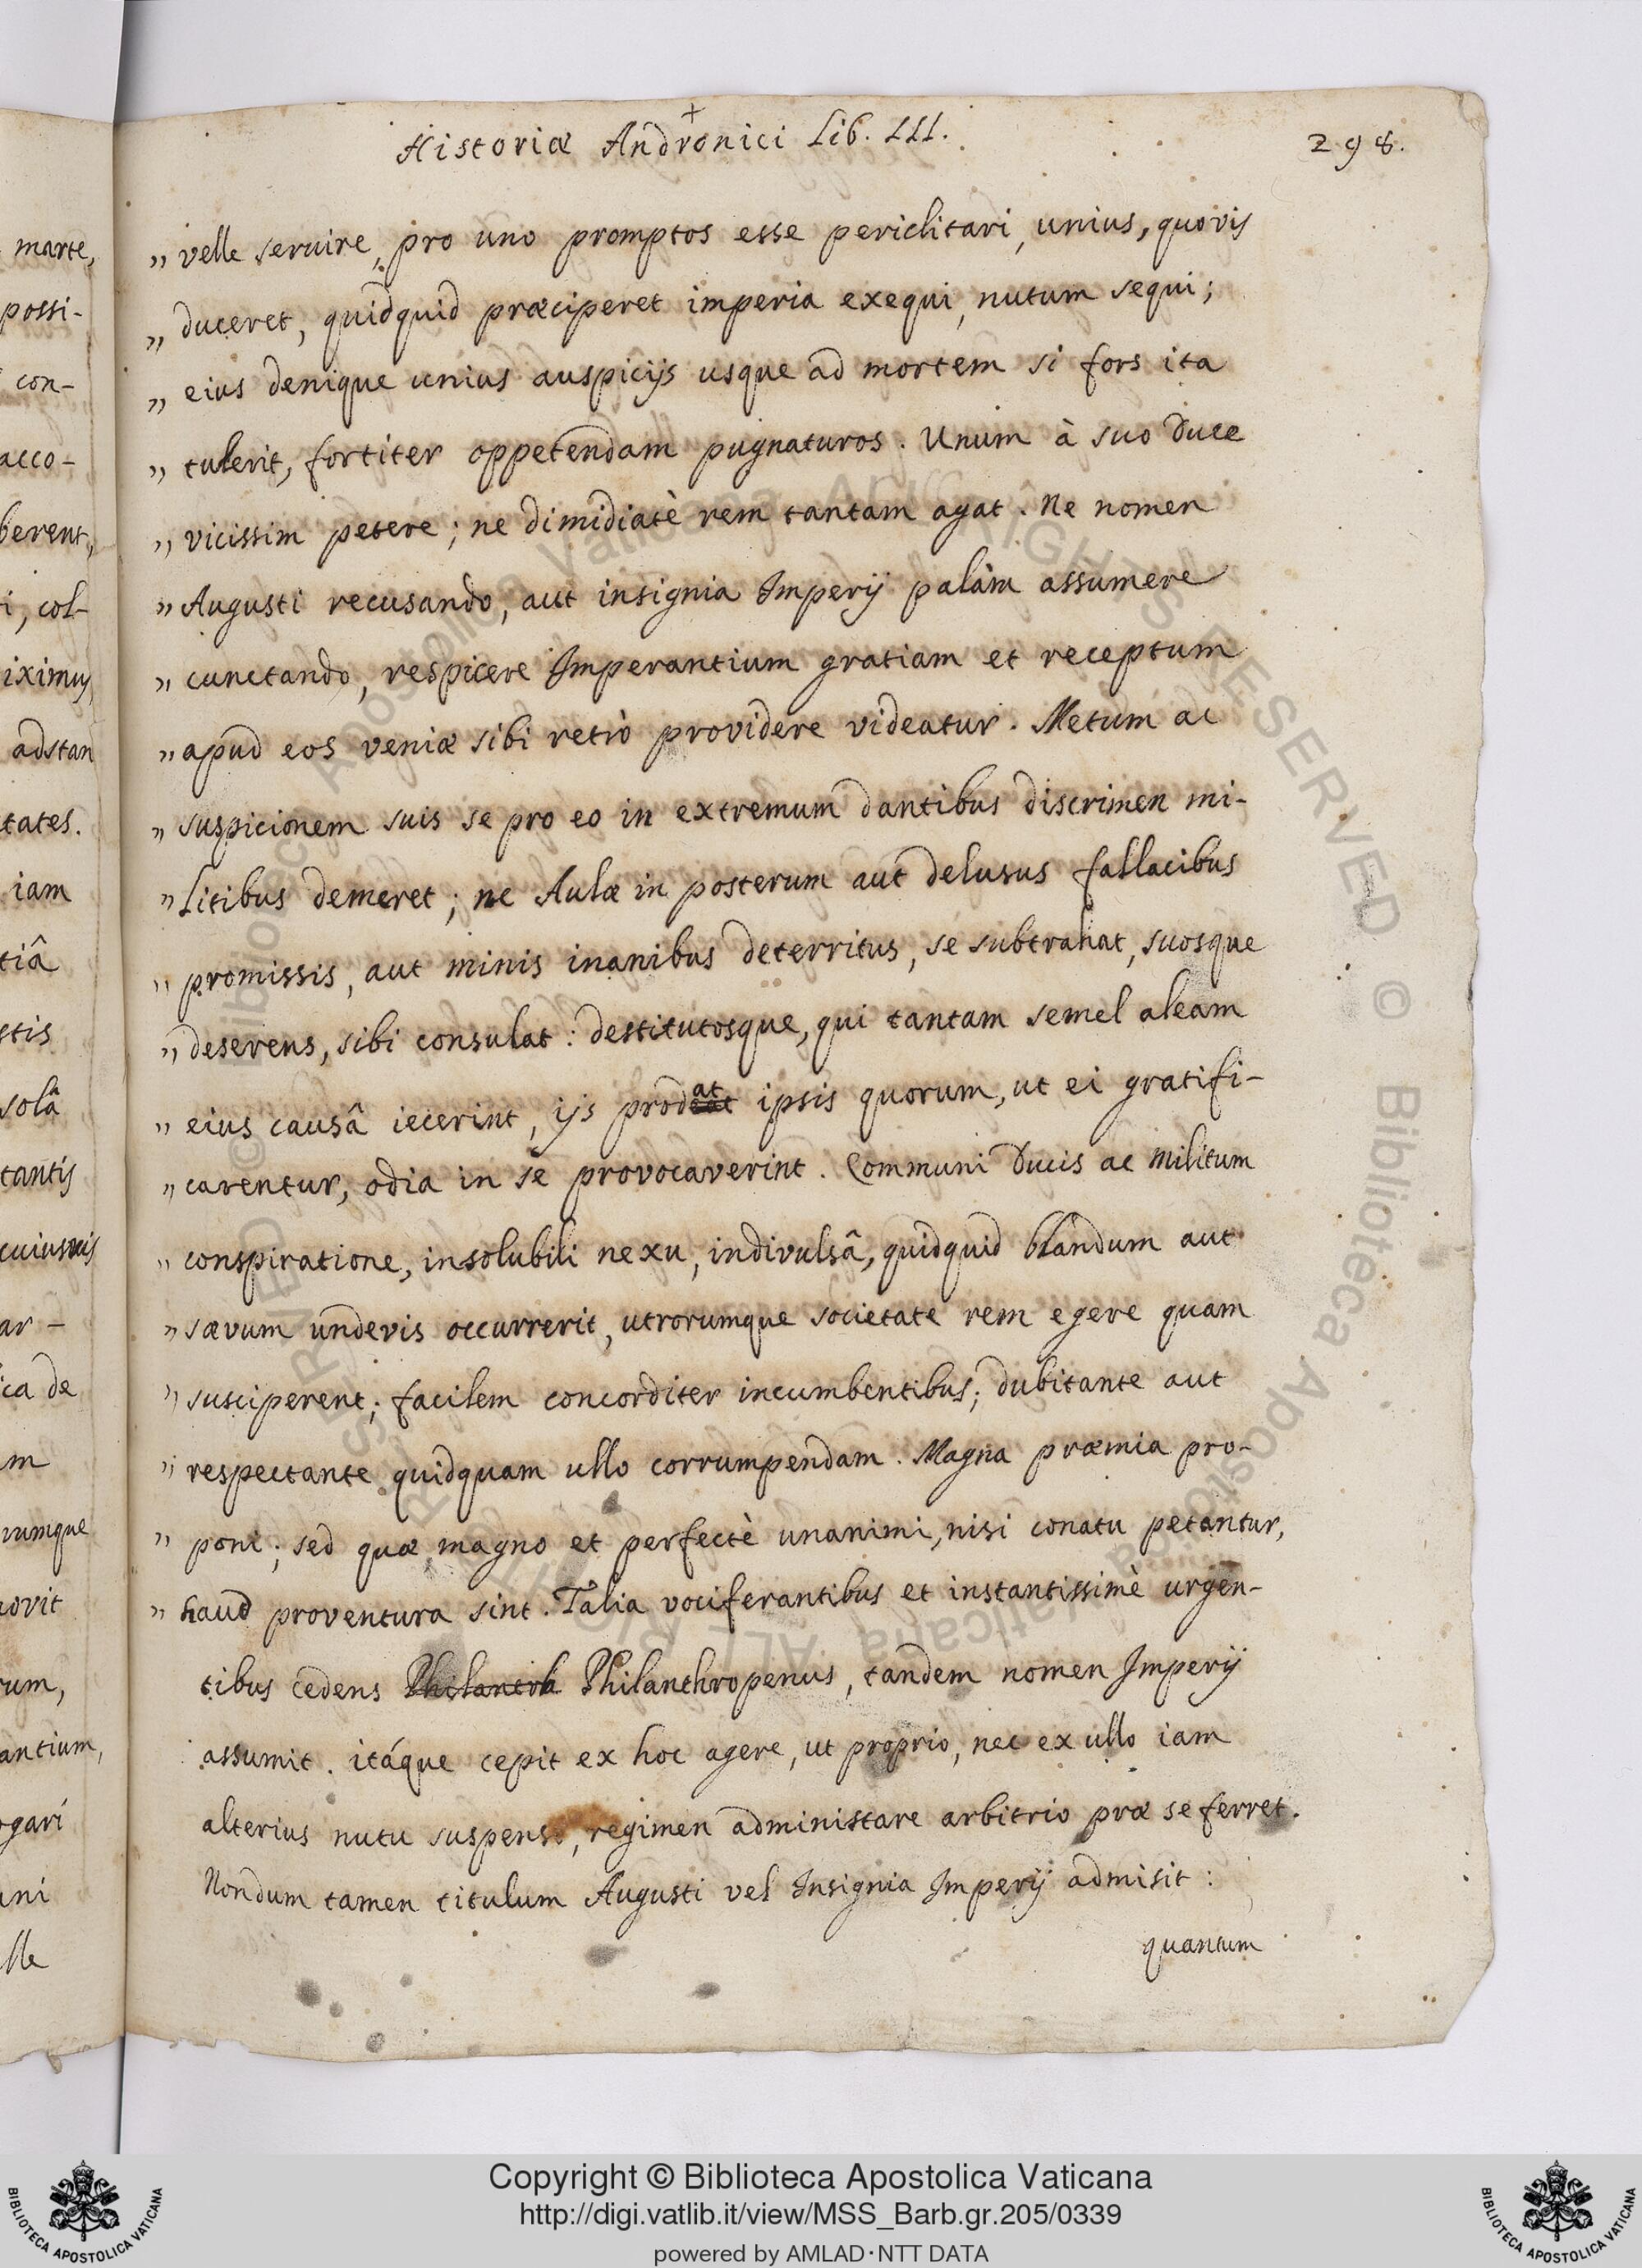 +
Historiæ Andronici Lib. III.
298.
marte,
possi-
con-
acco-
berent,
i, col-
iximus
adstan
tates.
iam
tiâ
stis
solâ
tantis
cuiusvis
ar-
ica de
m
rumque
novit
rum,
antium,
ogari
uni
lle
„ velle seruire, pro uno promptos esse periclitari, unius, quovis
„ duceret, quidquid præciperet imperia exequi, nutum sequi;
„ eius denique unius auspicijs usque ad mortem si fors ita
„ tulerit, fortiter oppetendam pugnaturos. Unum à suo duce
„ vicissim petere; ne dimidiatè rem tantam agat. Ne nomen
„ Augusti recusando, aut insignia Imperij palàm assumere
„ cunctando, respicere Imperantium gratiam et receptum
„ apud eos veniæ sibi retrò providere videatur. Metum ac
„ suspicionem suis se pro eo in extremum dantibus discrimen mi-
„ litibus demeret; ne Aulæ in posterum aut delusus fallacibus
„ promissis, aut minis inanibus deterritus, se subtrahat, suosque
„ deserens, sibi consulat: destitutosque, qui tantam semel aleam
„ eius causâ iecerint, ijs prodat ipsis quorum, ut ei gratifi-
„ carentur, odia in se provocaverint. Communi Ducis ac militum
„ conspiratione, insolubili nexu, indivulsâ, quidquid blandum aut
„ sævum undevis occurrerit, utrorumque societate rem egere quam
„ susciperent; facilem concorditer incumbentibus; dubitante aut
„ respectante quidquam ullo corrumpendam. Magna præmia pro-
„ poni; sed quæ magno et perfectè unanimi, nisi conatu petantur,
„ haud proventura sint. Talia vociferantibus et instantissimè urgen-
tibus cedens Philantrh Philanthropenus, tandem nomen Imperij
assumit. itáque cepit ex hoc agere, ut proprio, nec ex ullo iam
alterius nutu suspenso, regimen administare arbitrio præ se ferret.
Nondum tamen titulum Augusti vel Insignia Imperij admisit:
quantum
© Biblioteca Apostolica Vaticana ALL RIGHTS RESERVED © Biblioteca Apostolica Vaticana ALL RIGHTS RESERVED
Copyright © Biblioteca Apostolica Vaticana
http://digi.vatlib.it/view/MSS_Barb.gr.205/0339
powered by AMLAD·NTT DATA
BIBLIOTECA APOSTOLICA VATICANA
BIBLIOTECA APOSTOLICA VATICANA